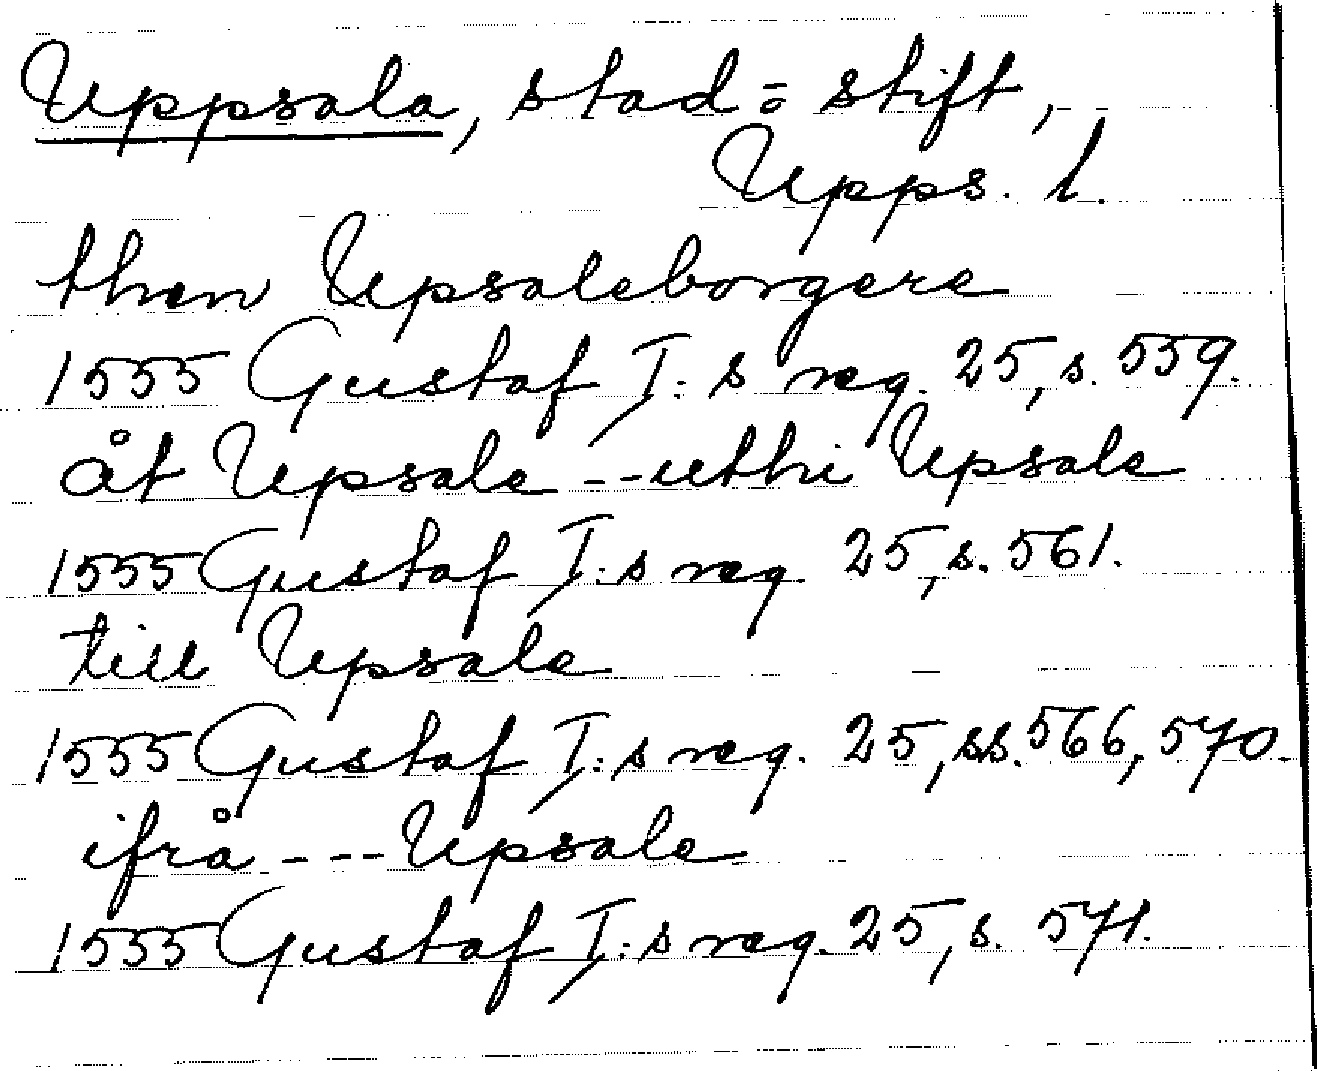 Uppsala, stad o stift,
Upps. l.
then Upsaleborgere
1555 Gustaf I:s reg. 25, s. 559.
åt Upsale --uthi Upsale
1555 Gustaf I:s reg 25, s. 561.
till Upsale
1555 Gustaf I:s reg. 25, ss. 566, 570.
ifrå --- Upsale
1555 Gustaf I:s reg. 25, s. 571.